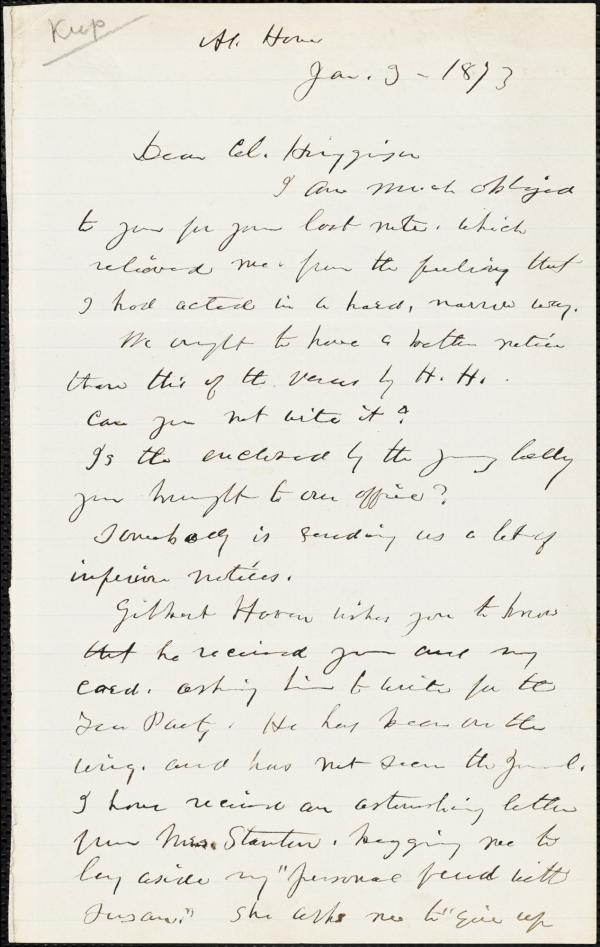 Keep
At Home
Jan. 9 - 1873
Dear Col. Higginson
I am much obliged
to you for your last note. which
relieved me from the feeling that
I had acted in a hard, narrow way.
We ought to have a better notice
than this of the verses by H. H.
Can you not write it?
Is the enclosed by the young lady
you brought to our office?
Somebody is sending us a lot of
inferior notices.
Gilbert Haven wishes you to know
that he received your and my
card. asking him to write for the
Tea Party. He has been on the
wing. and has not seen the Journal.
I have received an astonishing letter
from Mrs. Stanton. begging me to
lay aside my "personal feud with
Susan." She asks me to "give up